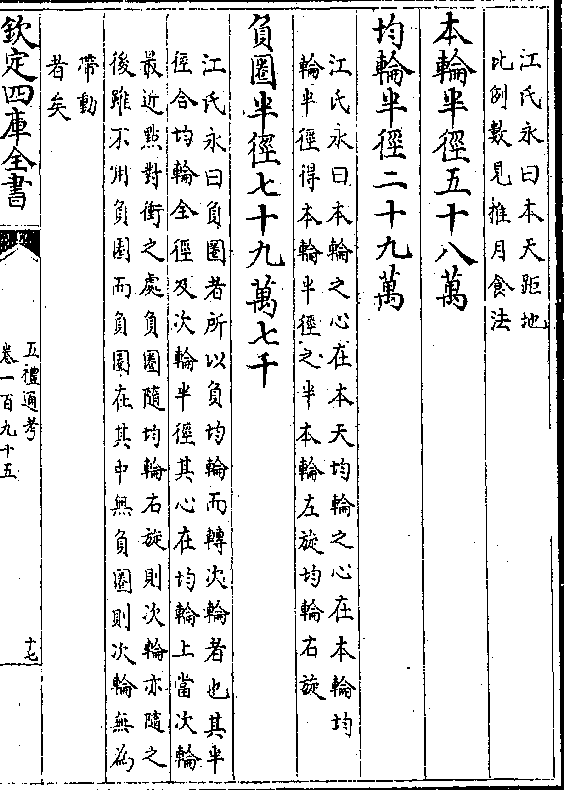 江氏永曰本天距地
比例數見推月食法
本輪半徑五十八萬
均輪半徑二十九萬
江氏永曰本輪之心在本天均輪之心在本輪均
輪半徑得本輪半徑之半本輪左旋均輪右旋
負圈半徑七十九萬七千
江氏永曰負圈者所以負均輪而轉次輪者也其半
徑合均輪全徑及次輪半徑其心在均輪上當次輪
最近點對衝之處負圈隨均輪右旋則次輪亦隨之
後雖不用負圈而負圈在其中無負圈則次輪無為
帶動
者矣
欽定四庫全書
五禮通考
卷一百九十五
十七